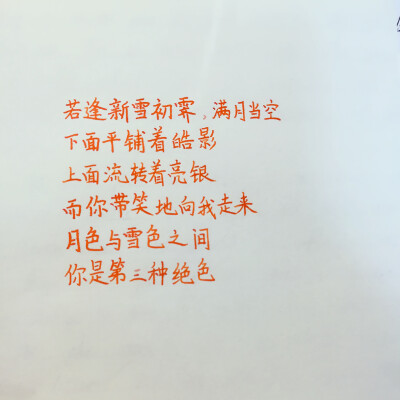 若逢新雪初霁，满月当空
下面平铺着皓影
上面流转着亮银
而你带笑地向我走来
月色与雪色之间
你是第三种绝色